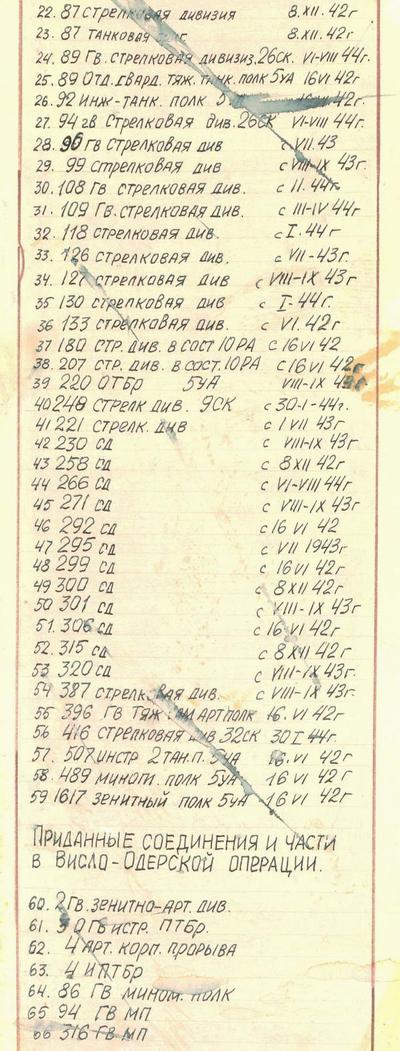 22. 87 стрелковая дивизия 8.XII. 42г
23. 87 танковая 8.XII. 42г
24. 89 Гв. стрелковая дивизиз. 26СК. VI-VIII 44г.
25. 89 Отд. Гвард. тяж. танк. полк 5УА 16 VI 42г
26. 92 Инж-танк. полк 42г.
27. 94 гв Стрелковая див. 26СК VI-VIII 44г.
28. 96 гв стрелковая див с VII.43
29. 99 стрелковая див с VIII-IX 43г.
30. 108 Гв стрелковая див. с II. 44г.
31. 109 Гв. стрелковая див. с III-IV 44г
32. 118 стрелковая див. с I. 44г
33. 126 стрелковая див. с VII-43г.
34. 127 стрелковая див с VIII-IX 43г
35 130 стрелковая див с I-44г.
36 133 стрелковая див. с VI. 42г
37 180 стр. див. в сост 10РА с 16 VI 42
38. 207 стр. див. в сост. 10РА с 16 VI 42г
39 220 ОТБр 5УА VIII-IX
40 248 стрелк див. 9СК с 30-I-44г.
41 221 стрелк. див с I VII 43г
42 230 сд с VIII-IX 43г
43 258 сд с 8 XII 42г
44 266 сд с VI-VIII 44г
45 271 сд с VIII-IX 43г
46 292 сд с 16 VI 42
47 295 сд с VII 1943г
48 299 сд с 16 VI 42г
49 300 сд с 8 XII 42г
50 301 сд с VIII-IX 43г
51. 306 сд с 16 VI 42г
52. 315 сд с 8 XII 42г
53 320 сд с VIII-IX 43г.
54 387 стрелковая див. с VIII-IX 43г.
55 396 Гв Тяж. артполк 16. VI 42г
56 416 стрелковая див 32СК 30 I 44г
57. 507 инстр 2 тан.п. 5УА 16. VI 42г
58. 489 миноги. полк 5УА 16 VI 42г
59 1617 зенитный полк 5УА 16 VI 42г
Приданные соединения и части
в Висло-Одерской операции.
60. 2 Гв. зенитно-арт. див.
61. Гв истр. ПТБр.
62. 4 Арт. корп. прорыва
63. 4 ИПТБр
64. 86 Гв мином. полк
65 94 ГВ МП
66 316 ГВ МП